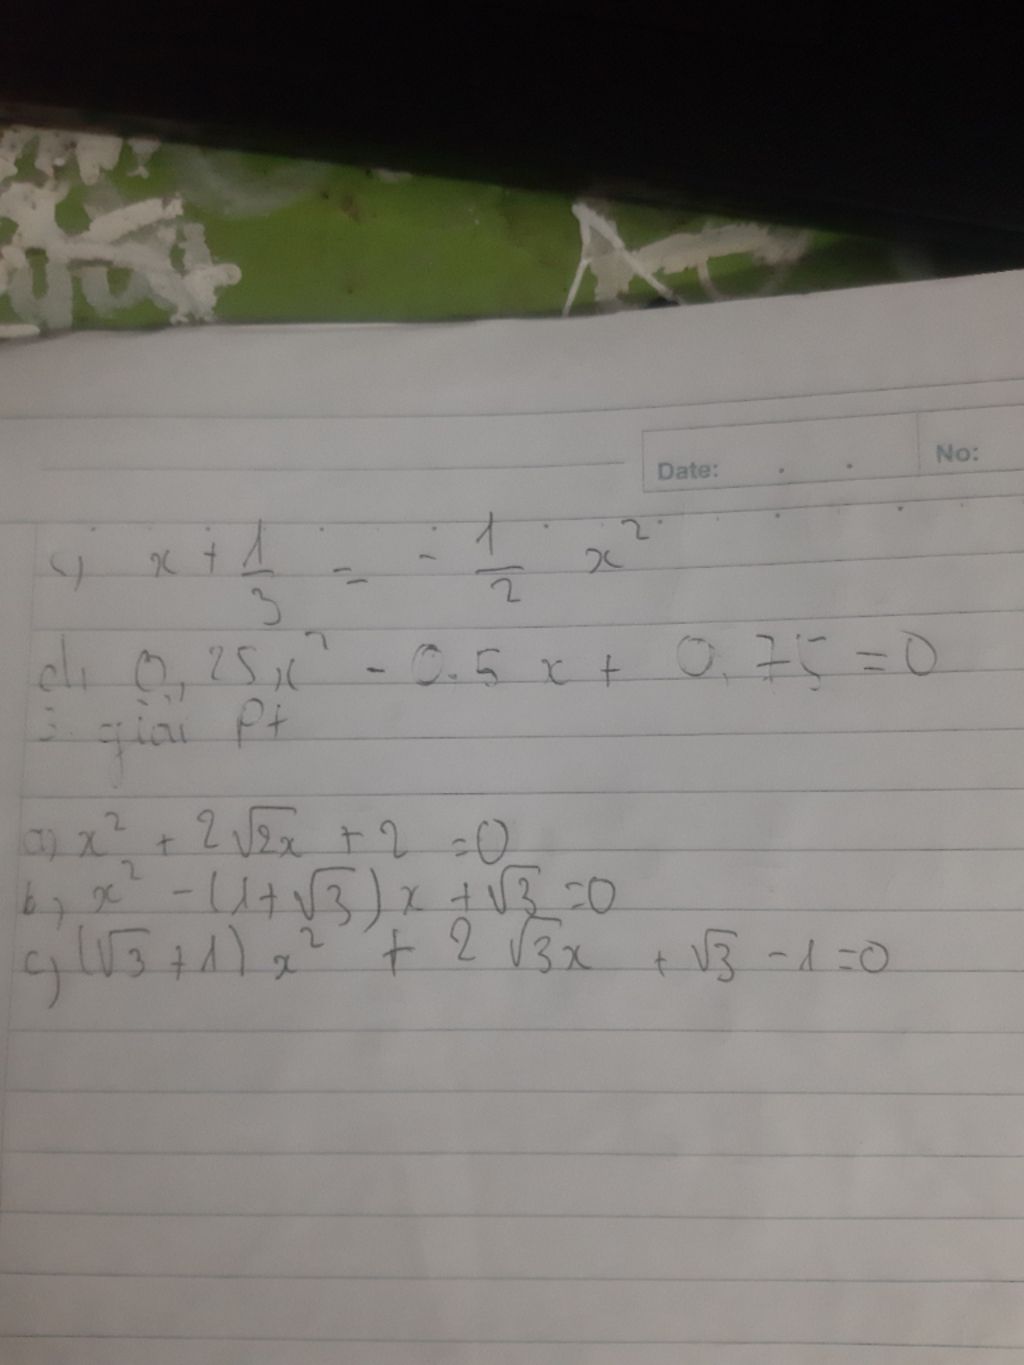 Date: . . No:
c) x + 1/3 = - 1/2 x²
d, 0,25x² - 0.5 x + 0.75 = 0
giải Pt
a) x² + 2√2x + 2 = 0
b, x² - (1+√3) x + √3 = 0
c) (√3 + 1) x² + 2 √3x + √3 - 1 = 0